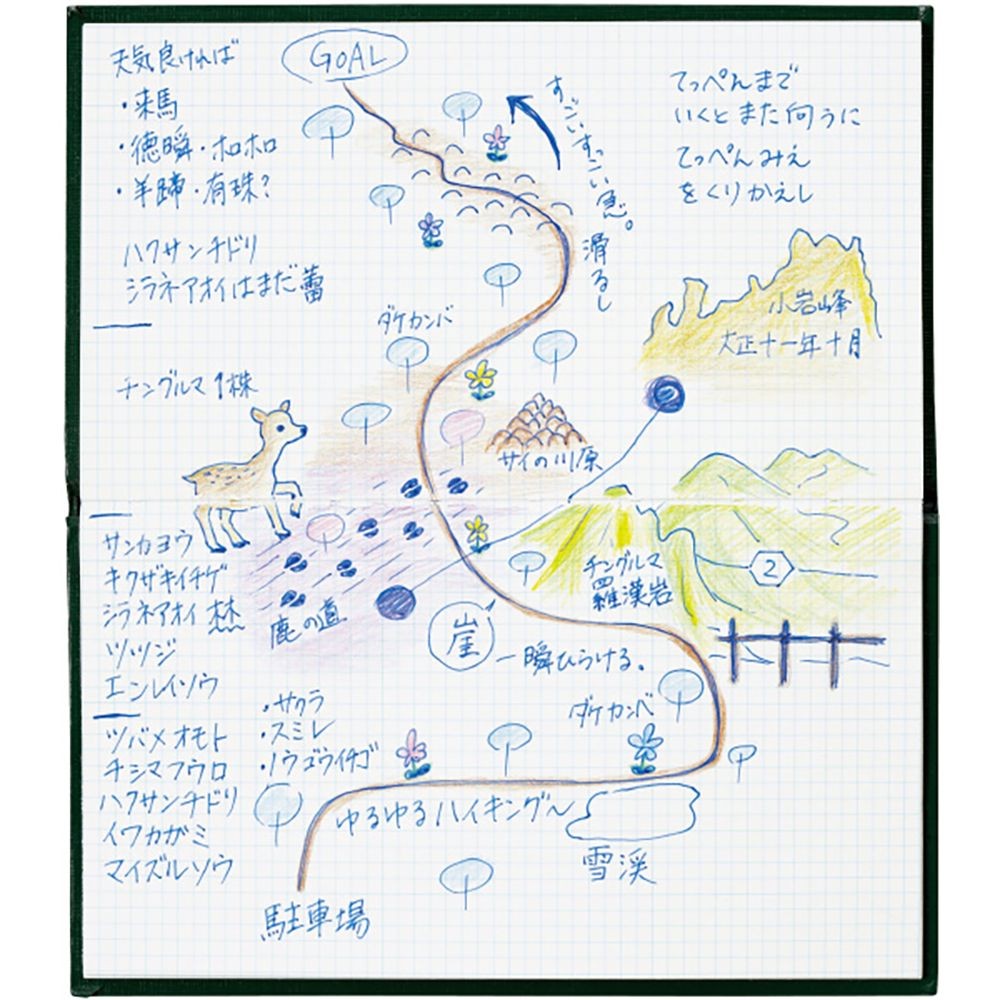 天気良ければ
・来馬
・徳瞬・ホロホロ
・羊蹄・有珠?
ハクサンチドリ
シラネアオイはまだ蕾
チングルマ1株
サンカヨウ
キクザキイチゲ
シラネアオイ 森
ツツジ
エンレイソウ
ツバメオモト
チシマフウロ
ハクサンチドリ
イワカガミ
マイズルソウ
・サクラ
・スミレ
・ノウゴウイチゴ
GOAL
すごいすっごい急。
滑るし
てっぺんまで
いくとまた向うに
てっぺんみえ
をくりかえし
小岩峰
大正十一年十月
ダケカンバ
サイの川原
チングルマ
羅漢岩
2
鹿の道
崖
一瞬ひらける。
ダケカンベ
ゆるゆるハイキング〜
雪渓
駐車場